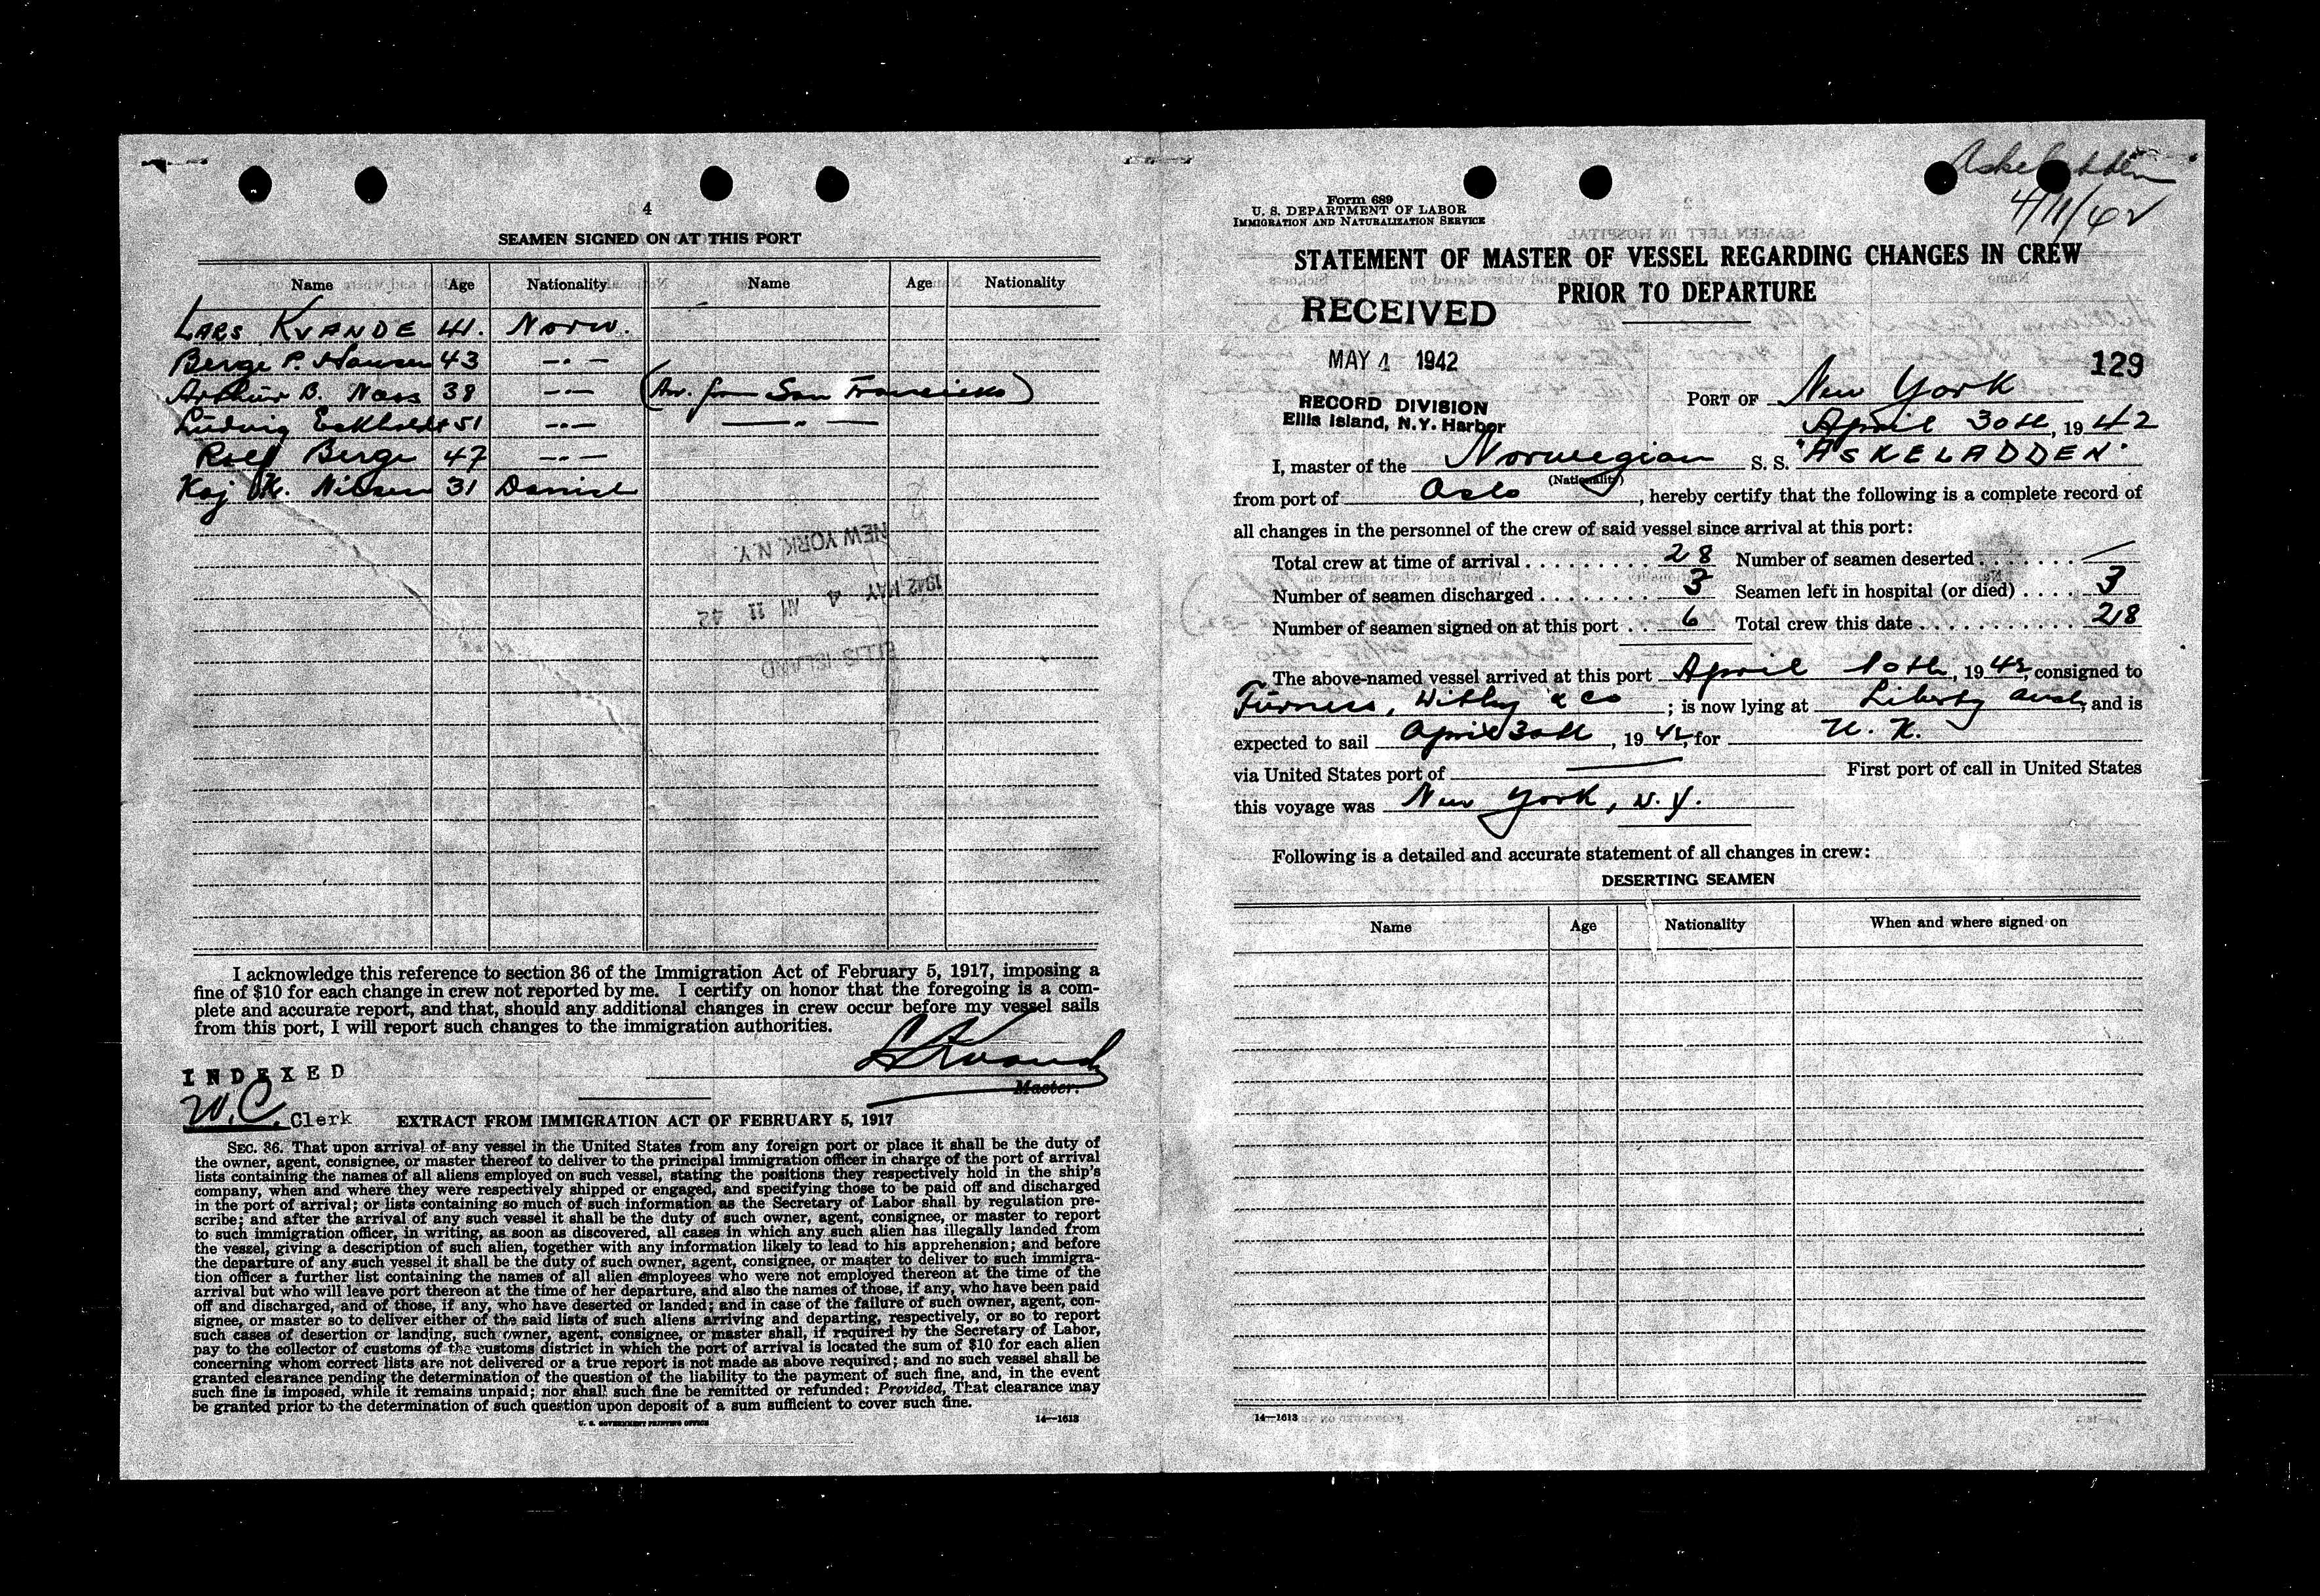 4
SEAMEN SIGNED ON AT THIS PORT
Name Age Nationality Name Age Nationality
LARS KVANDE 41. Norw.
Berge P. Hansen 43 —.—
Arthur B. Naas 38 —.— (Arr. from San Francisko)
Ludwig 51 —.— —— „ ——
Rolf Berge 47 —.—
Kaj K. Nilsen 31 Danish
NEW YORK N.Y.
1942 MAY 4 AM 11 42
ELLIS ISLAND
I acknowledge this reference to section 36 of the Immigration Act of February 5, 1917, imposing a
fine of $10 for each change in crew not reported by me. I certify on honor that the foregoing is a com-
plete and accurate report, and that, should any additional changes in crew occur before my vessel sails
from this port, I will report such changes to the immigration authorities.
L Kvande
Master.
INDEXED
W.C. Clerk
EXTRACT FROM IMMIGRATION ACT OF FEBRUARY 5, 1917
SEC. 36. That upon arrival of any vessel in the United States from any foreign port or place it shall be the duty of
the owner, agent, consignee, or master thereof to deliver to the principal immigration officer in charge of the port of arrival
lists containing the names of all aliens employed on such vessel, stating the positions they respectively hold in the ship's
company, when and where they were respectively shipped or engaged, and specifying those to be paid off and discharged
in the port of arrival; or lists containing so much of such information as the Secretary of Labor shall by regulation pre-
scribe; and after the arrival of any such vessel it shall be the duty of such owner, agent, consignee, or master to report
to such immigration officer, in writing, as soon as discovered, all cases in which any such alien has illegally landed from
the vessel, giving a description of such alien, together with any information likely to lead to his apprehension; and before
the departure of any such vessel it shall be the duty of such owner, agent, consignee, or master to deliver to such immigra-
tion officer a further list containing the names of all alien employees who were not employed thereon at the time of the
arrival but who will leave port thereon at the time of her departure, and also the names of those, if any, who have been paid
off and discharged, and of those, if any, who have deserted or landed; and in case of the failure of such owner, agent, con-
signee, or master so to deliver either of the said lists of such aliens arriving and departing, respectively, or so to report
such cases of desertion or landing, such owner, agent, consignee, or master shall, if required by the Secretary of Labor,
pay to the collector of customs of the customs district in which the port of arrival is located the sum of $10 for each alien
concerning whom correct lists are not delivered or a true report is not made as above required; and no such vessel shall be
granted clearance pending the determination of the question of the liability to the payment of such fine, and, in the event
such fine is imposed, while it remains unpaid; nor shall such fine be remitted or refunded: Provided, That clearance may
be granted prior to the determination of such question upon deposit of a sum sufficient to cover such fine.
U. S. GOVERNMENT PRINTING OFFICE 14—1613
Askeladden
4/11/42
Form 689
U. S. DEPARTMENT OF LABOR
IMMIGRATION AND NATURALIZATION SERVICE
STATEMENT OF MASTER OF VESSEL REGARDING CHANGES IN CREW
PRIOR TO DEPARTURE
RECEIVED
MAY 4 1942
RECORD DIVISION
Ellis Island, N.Y. Harbor
129
PORT OF New York
April 30th, 1942
I, master of the Norwegian S. S. "ASKELADDEN"
(Nationality)
from port of Oslo, hereby certify that the following is a complete record of
all changes in the personnel of the crew of said vessel since arrival at this port:
Total crew at time of arrival 28 Number of seamen deserted —
Number of seamen discharged 3 Seamen left in hospital (or died) 3
Number of seamen signed on at this port 6 Total crew this date 28
The above-named vessel arrived at this port April 10th, 1942, consigned to
Furness, Withy & Co; is now lying at Liberty anch, and is
expected to sail April 30th, 1942, for U. K.
via United States port of — First port of call in United States
this voyage was New York, N.Y.
Following is a detailed and accurate statement of all changes in crew:
DESERTING SEAMEN
Name Age Nationality When and where signed on
14—1613